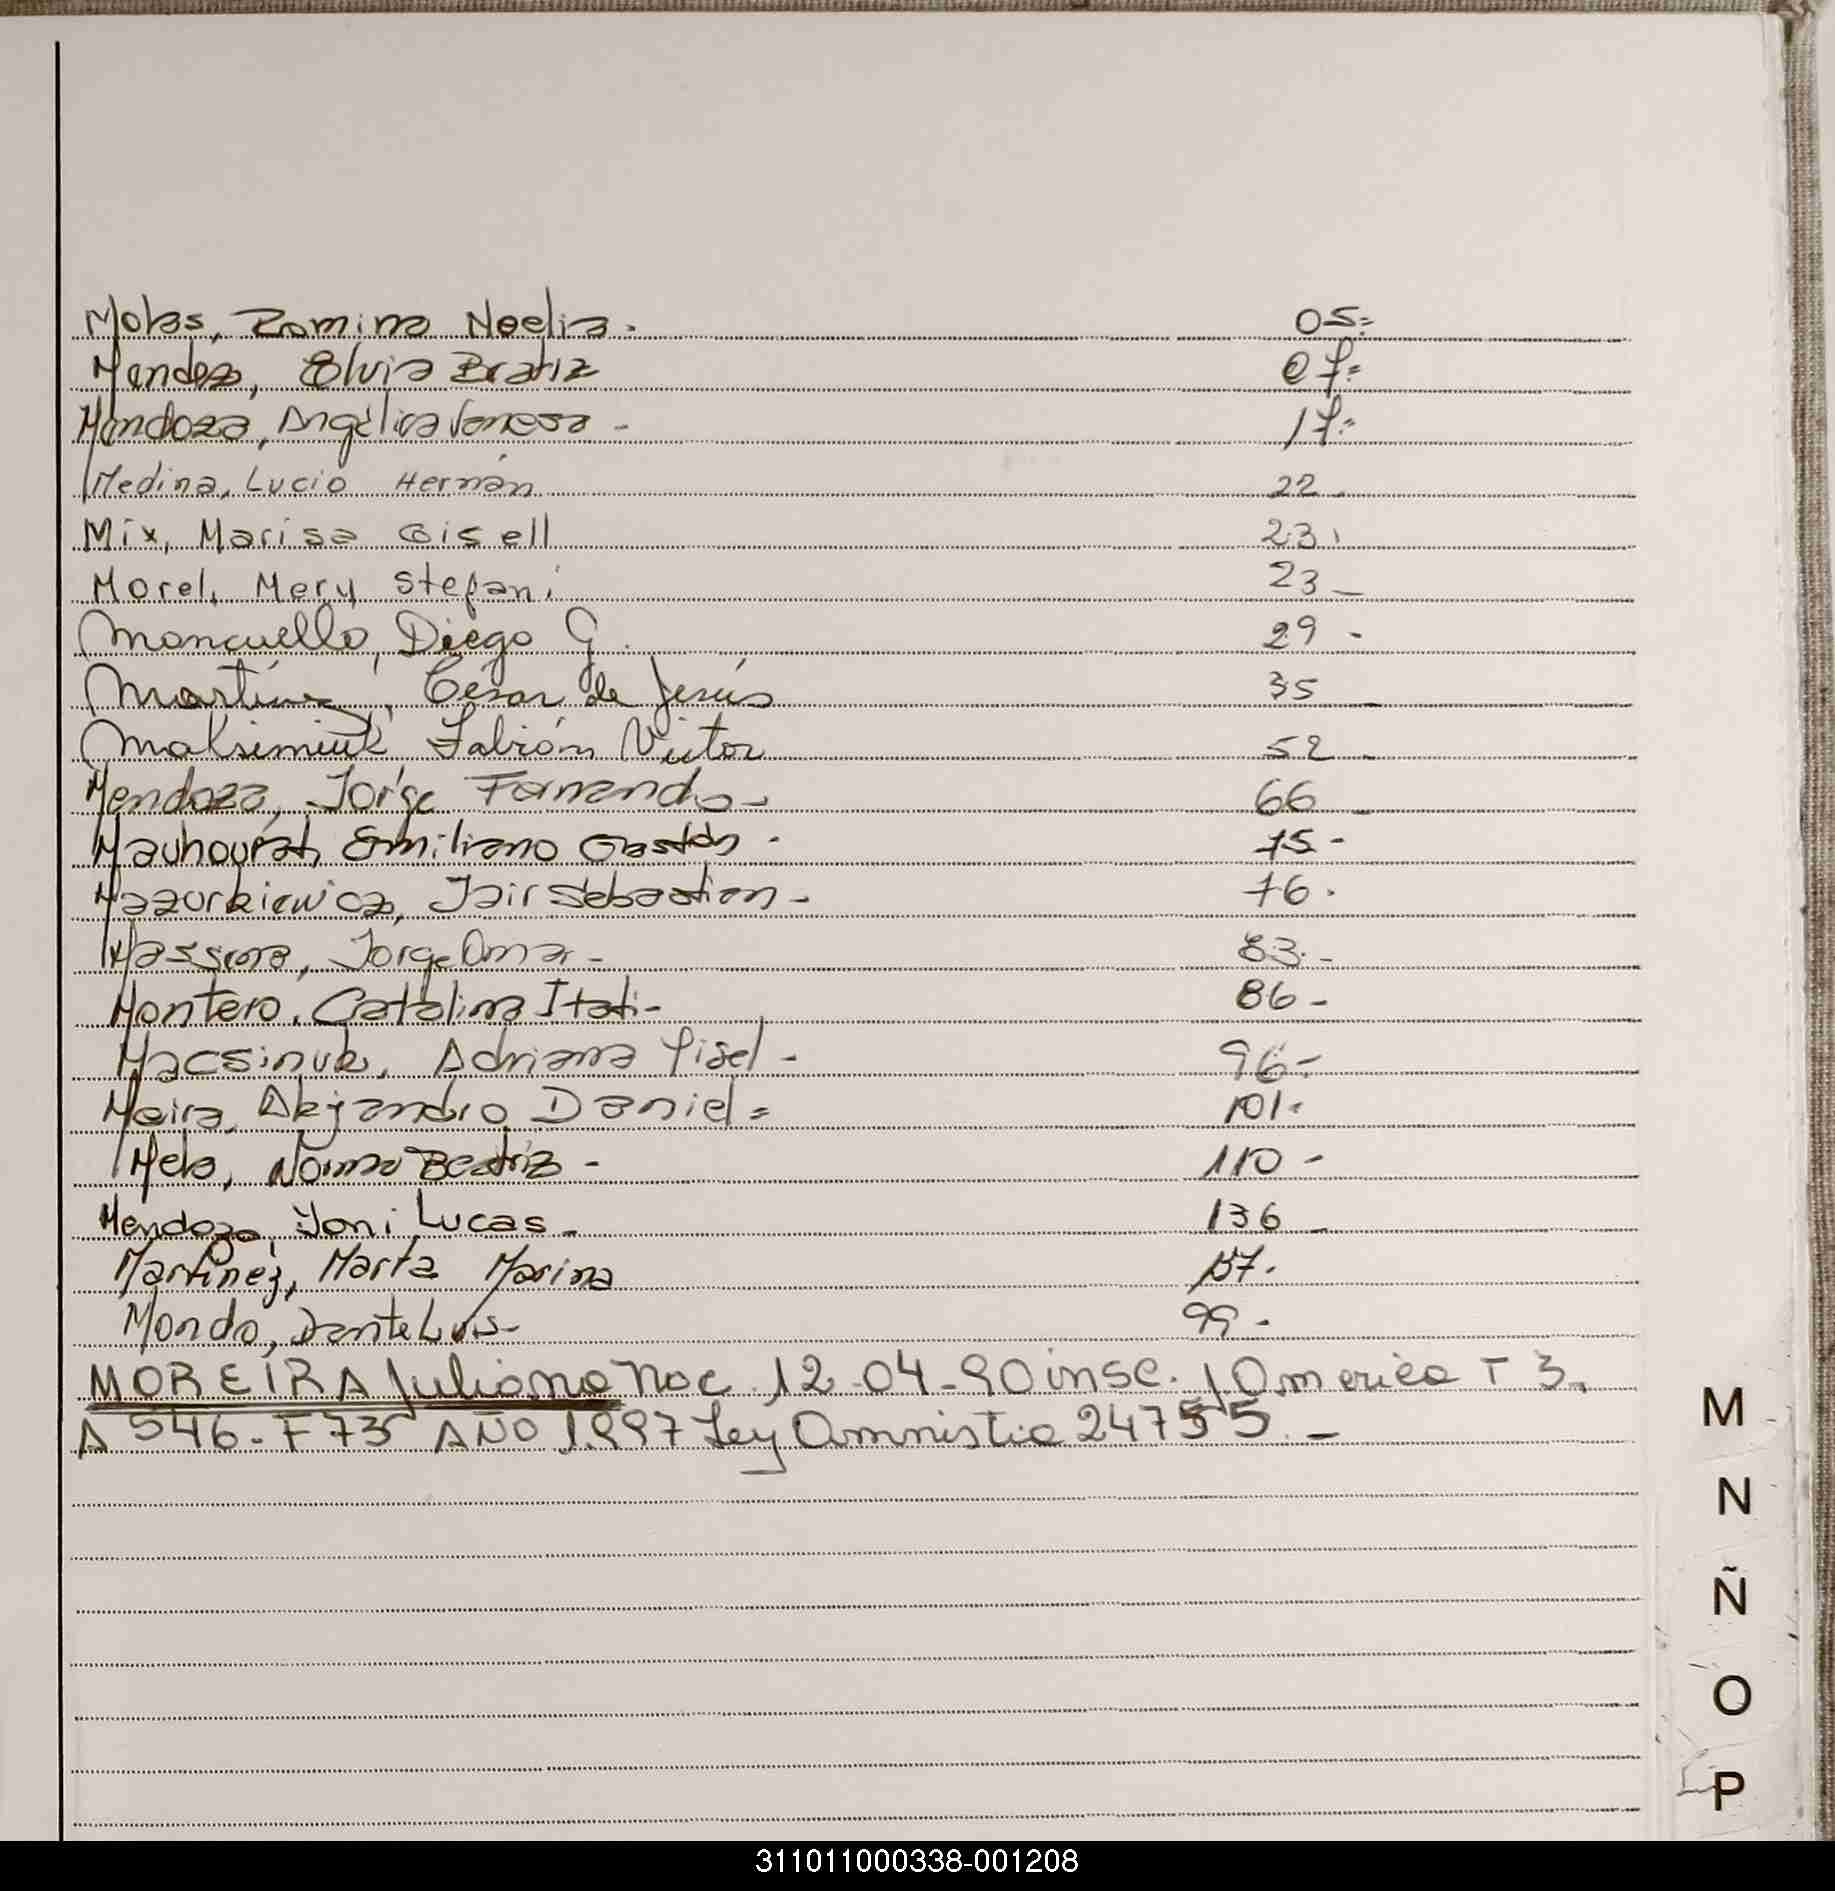 Molas, Romina Noelia. 05=
Mendez, Elvia Beatriz 07=
Mendoza, Angélica Vanesa - 17=
Medina, Lucio Hernán 22.
Mix, Marisa Gisell 23.
Morel, Mery Stefani 23_
Moncuello, Diego G. 29 -
Martínez, César de Jesús 35_
Maksimiuk Fabián Victor 52_
Mendoza, Jorge Fernando- 66_
Mauhourat, Emiliano Gastón - 75-
Mazurkiewicz, Jair Sebastian- 76.
Jorge Omar- 83.-
Montero, Catalina Itati- 86-
Macsinuk, Adriana Yisel - 96-
Meira, Alejandro Daniel= 101.
Melo, Norma Beatriz - 110-
Mendoza, Yoni Lucas- 136_
Martinez, Marta Marina 137.
Mondo, Dante Luis- 99-
MOREIRA Juliana Nac. 12-04-90 insc. America T 3.
A 546-F73 AÑO 1.997 Ley Amnistia 24755.-
M
N
Ñ
O
P
311011000338-001208